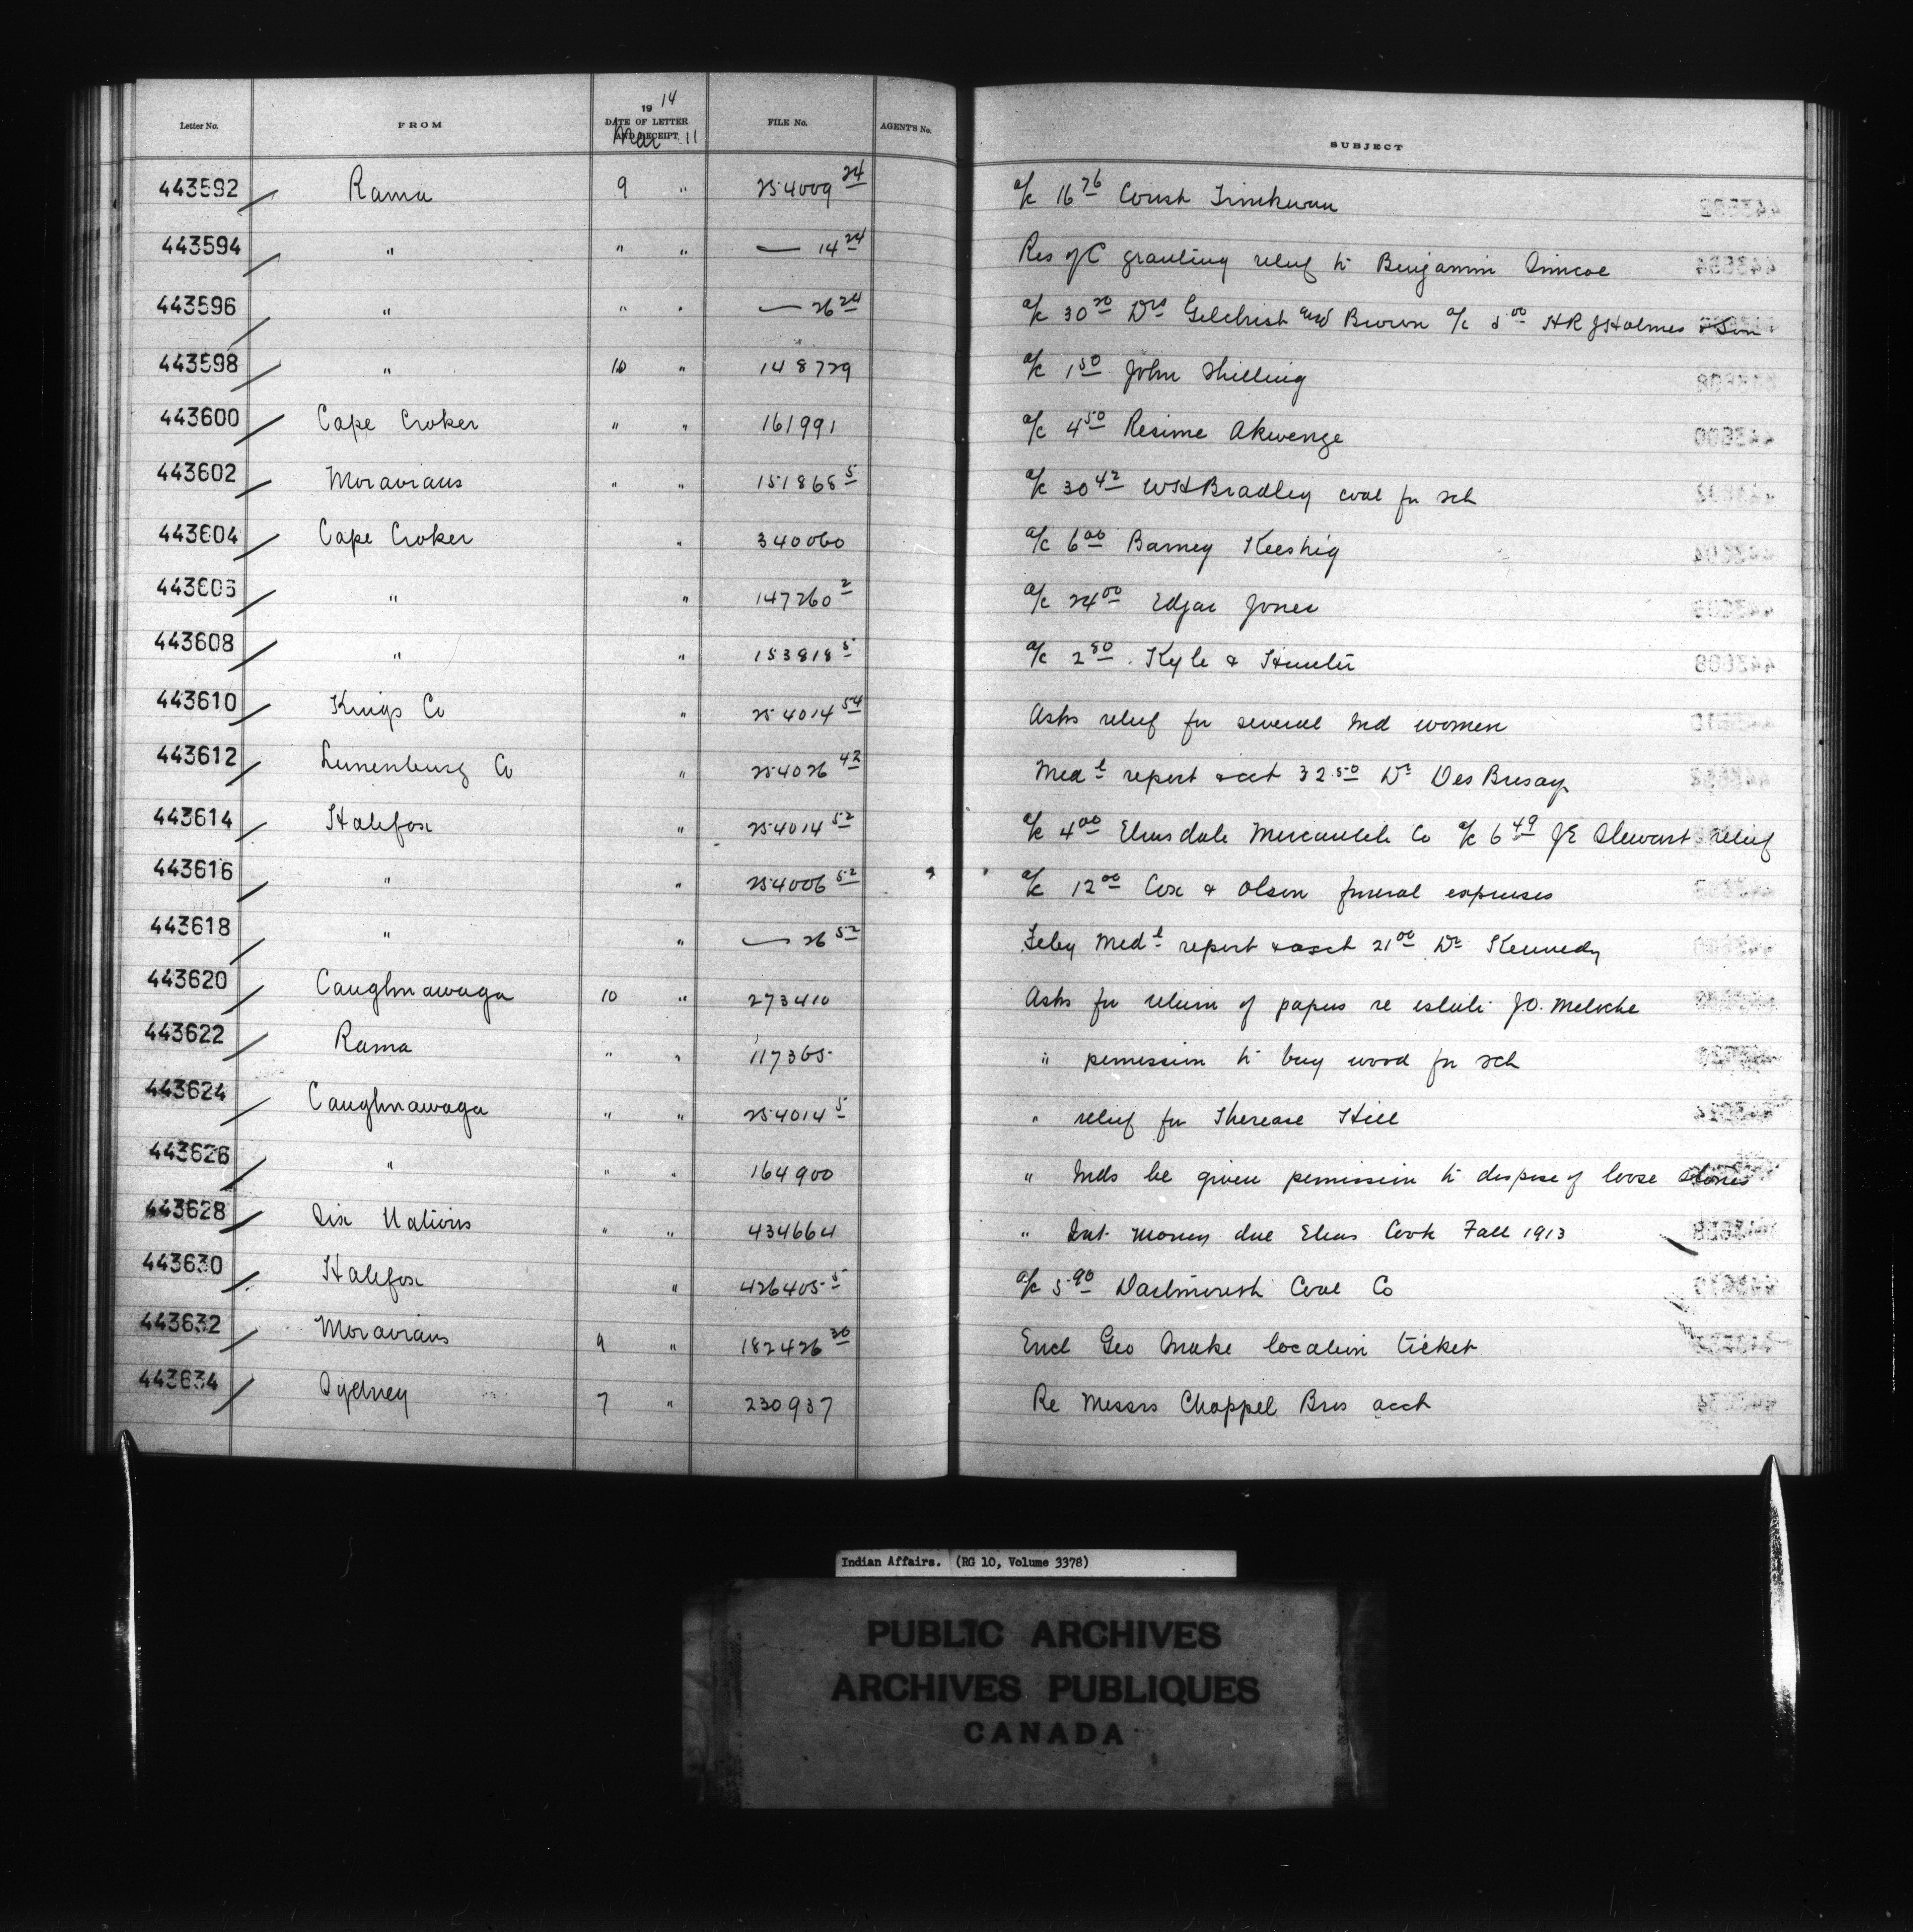 Letter No. FROM 19 14 DATE OF LETTER AND RECEIPT Mar 11 FILE No. AGENT'S No. SUBJECT
443592 Rama 9 " 254009 24 a/c 16 76 Const
443594 " " " — 14 24 Res of C granting relief to Benjamin Simcoe
443596 " " " — 26 24 a/c 30 20 Drs Gilchrist and Brown a/c 5 00 HR J Holmes & Son
443598 " 10 " 148729 a/c 1 50 John Shilling
443600 Cape Croker " " 161991 a/c 4 50 Resime Akwenge
443602 Moravians " " 151868 5 a/c 30 42 WH Bradley coal for sch
443604 Cape Croker " 340060 a/c 6 00 Barney Keeshig
443606 " " 147260 2 a/c 24 00 Edgar Jones
443608 " " 153818 5 a/c 2 80 Kyle & Hunter
443610 Kings Co " 254014 54 Asks relief for several Ind women
443612 Lunenburg Co " 254026 42 Med l report & acct 32.50 Dr Des Brisay
443614 Halifax " 254014 52 a/c 4 00 Elmsdale Mercantile Co a/c 6 49 JE Stewart relief
443616 " " 254006 52 a/c 12 00 Cox & Olsen funeral expenses
443618 " " — 26 52 Feby Med l report & acct 21 00 Dr Kennedy
443620 Caughnawaga 10 " 273410 Asks for return of papers re estate J.O. Meloche
443622 Rama " " 117365 " permission to buy wood for sch
443624 Caughnawaga " " 254014 5 " relief for Therease Hill
443626 " " " 164900 " Inds be given permission to dispose of loose stones
443628 Six Nations " " 434664 " Int money due Elias Cook Fall 1913
443630 Halifax " 426405 5 a/c 5 90 Dartmouth Coal Co
443632 Moravians 9 " 182426 30 Encl Geo Snake location ticket
443634 Sydney 7 " 230937 Re Messrs Chappel Bros acct
Indian Affairs. (RG 10, Volume 3378)
PUBLIC ARCHIVES
ARCHIVES PUBLIQUES
CANADA